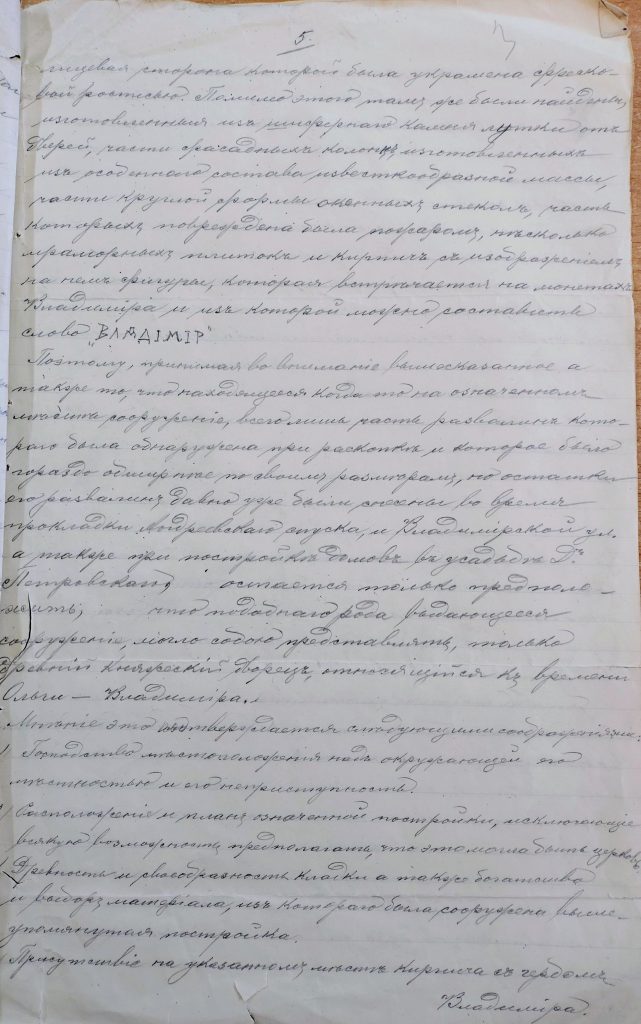 5.
лицевая сторона которой была украшена фреско-
вой росписью. Помимо этого тамъ же были найдены,
изготовленныя изъ шифернаго камня лутки отъ
дверей, части фасадныхъ колонъ, изготовленныхъ
изъ особеннаго состава известкообразной массы,
части круглой формы оконныхъ стеколъ, часть
которыхъ повреждена была пожаромъ, нѣсколько
мраморныхъ плитокъ и кирпичъ съ изображеніемъ
на немъ фигуры, которая встрѣчается на монетахъ
Владиміра и изъ которой можно составить
слово "ВЛАДІМІР"
Поэтому, принимая во вниманіе вышесказанное а
также то, что находящееся когда то на означенномъ
мѣстѣ сооруженіе, всего лишь часть развалинъ кото-
раго была обнаружена при раскопкѣ и которое было
гораздо обширнѣе по своимъ размѣрамъ, но остатки
его развалинъ давно уже были снесены во время
прокладки Андреевскаго спуска, и Владимірской ул.
а также при постройкѣ домовъ въ усадьбѣ Д-ръ
Петровскаго, остается только предполо-
жить, что подобнаго рода выдающееся
сооруженіе, могло собою представлять, только
древній Княжескій дворецъ, относящійся къ времени
Ольги — Владиміра.
Мнѣніе это подтверждается слѣдующими соображеніями:
Господство мѣстоположенія надъ окружающей его
мѣстностью и его неприступность.
Расположеніе и планъ означенной постройки, исключающіе
всякую возможность предполагать, что это могла быть церковь.
Древность и своеобразность кладки а также богатство
и выборъ матеріала, изъ котораго была сооружена выше-
упомянутая постройка.
Присутствіе на указанномъ мѣстѣ кирпича съ гербомъ
Владиміра.